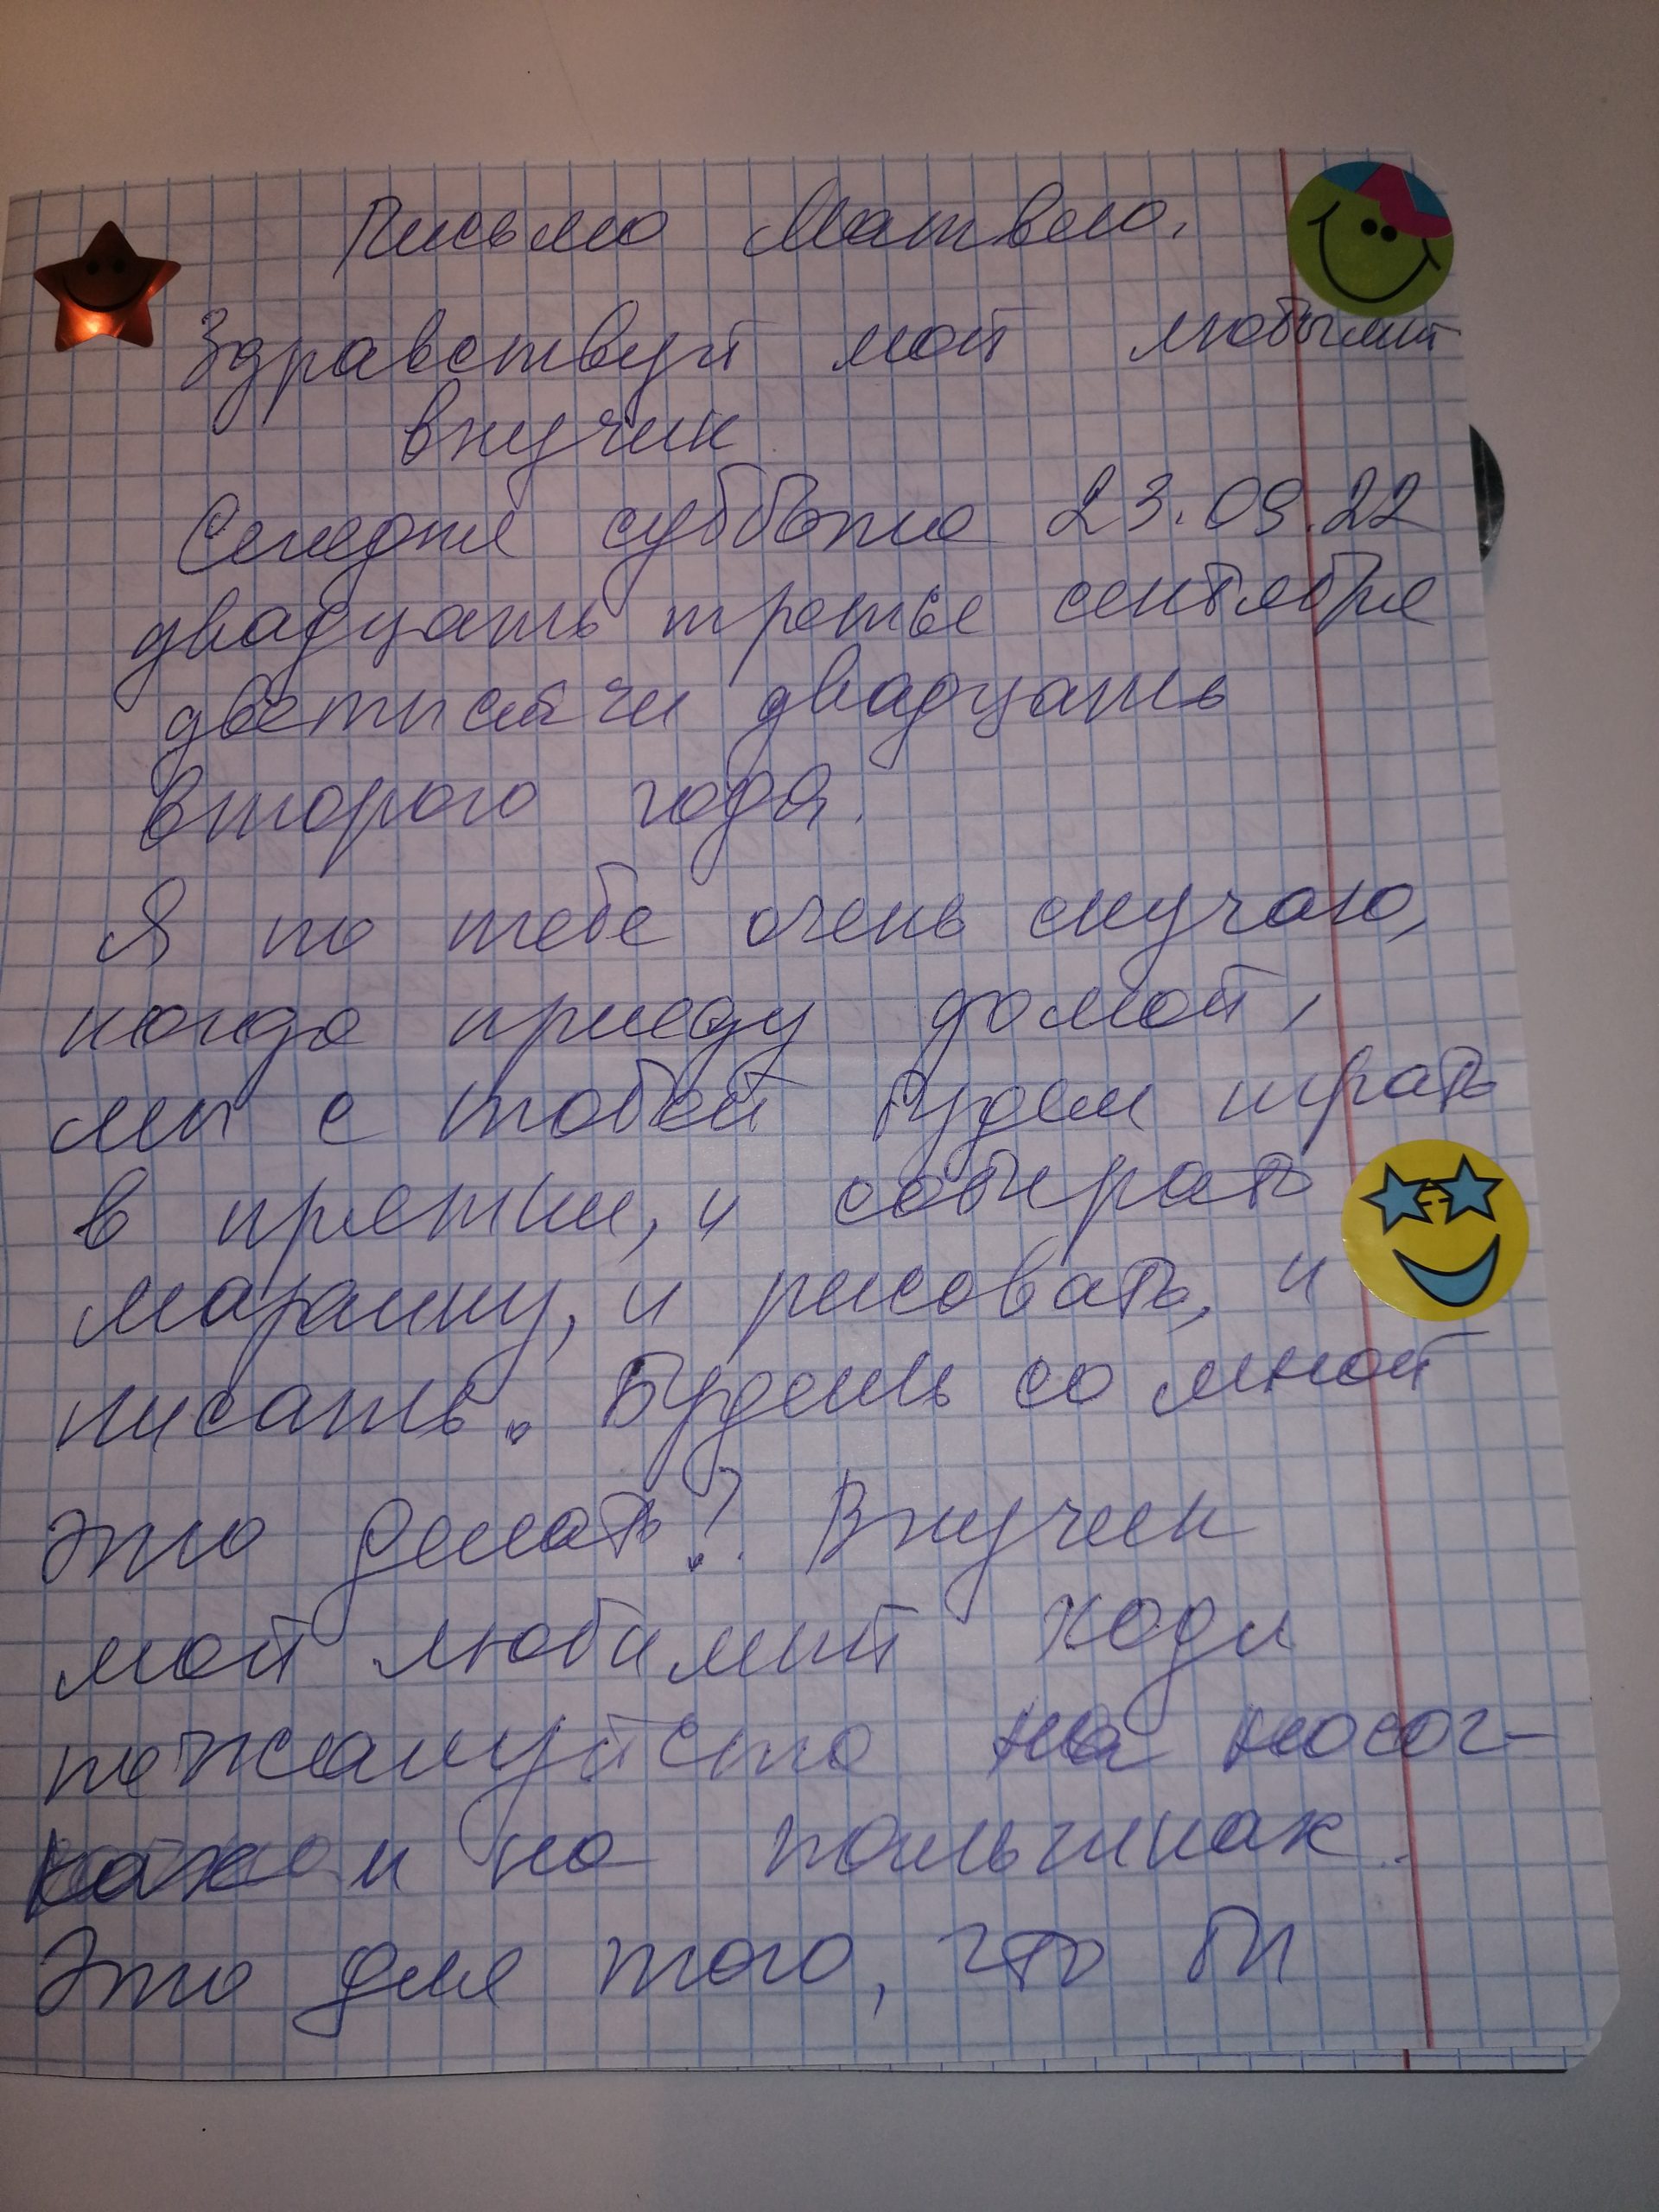 Письмо Матвею.
Здравствуй мой любымий
внучик
Сегодня суббота 23.09.22
двадцать третье сентября
дветысячи двадцать
второго года.
Я по тебе очень скучаю,
когда приеду домой,
мы с тобой будем играть
в прятки, и собирать
машину, и рисовать, и
писать. Будешь со мной
это делать? Внучик
мой любимий ходи
пожалуйста на носоч-
ках и на пальчиках.
Это для того, что бы